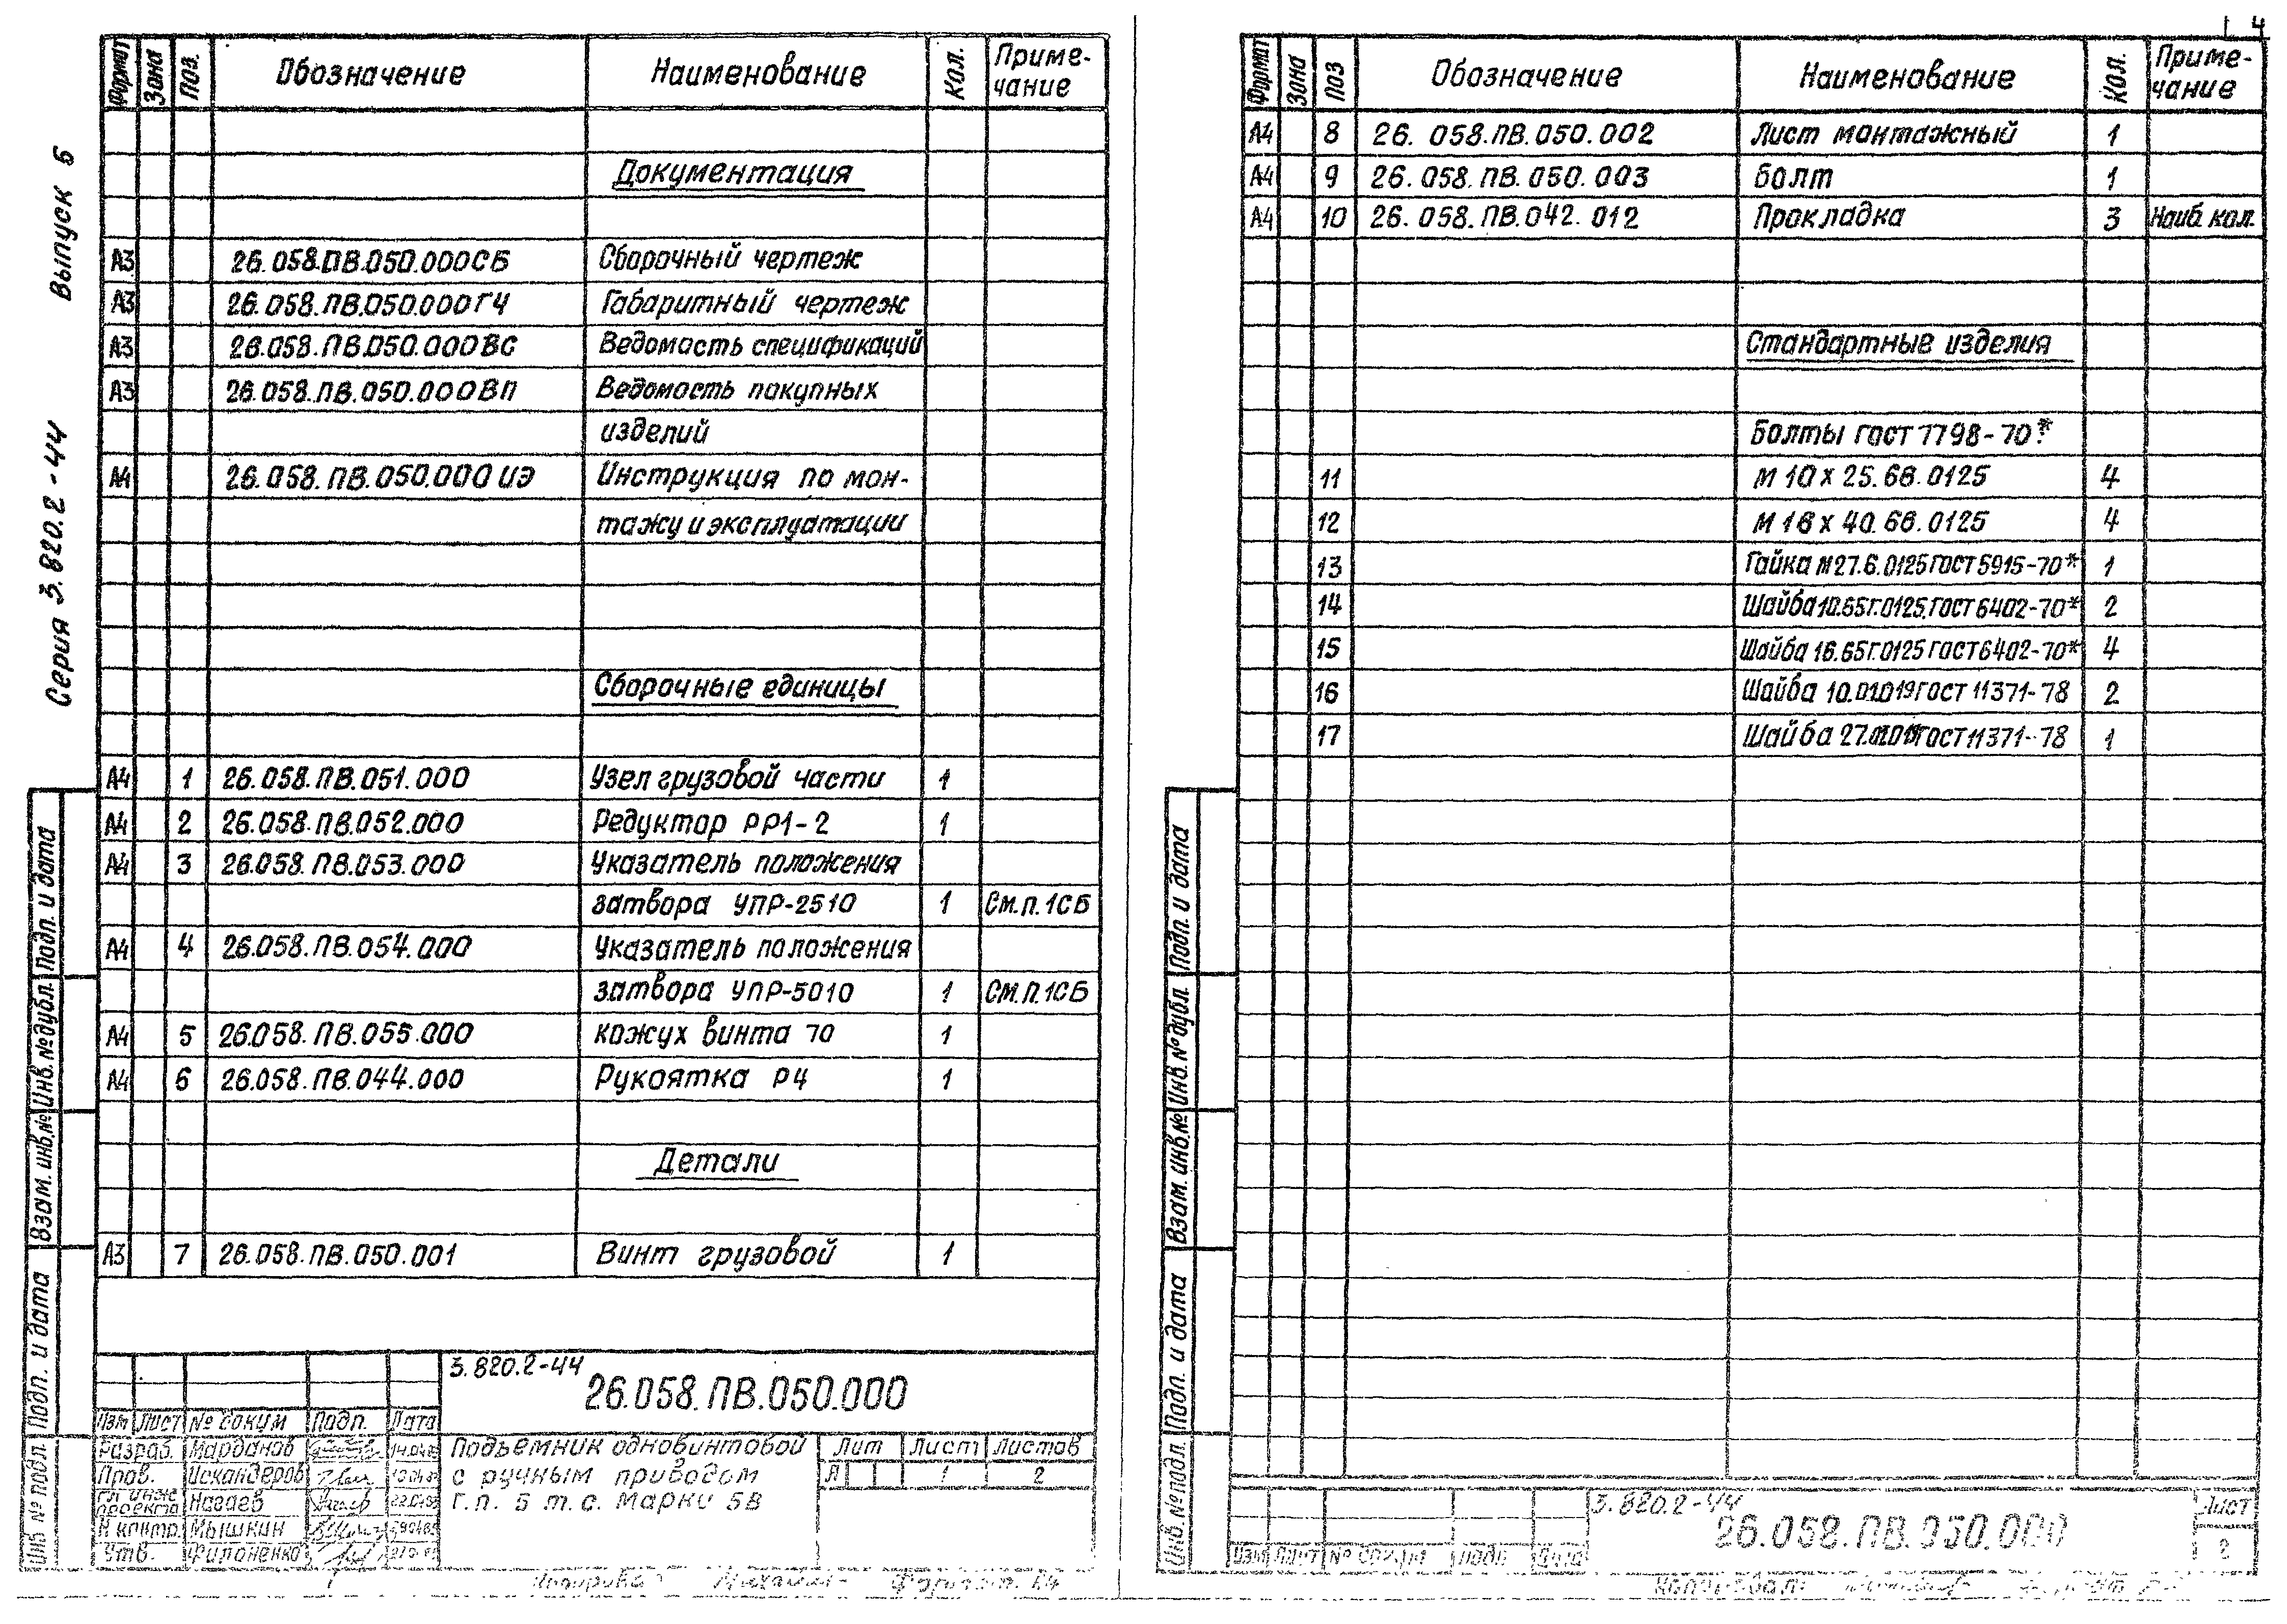 Серия 3.820.2-44 Выпуск 5
Формат Зона Поз. Обозначение Наименование Кол. Приме-
чание
Документация
А3 26.058.ПВ.050.000СБ Сборочный чертеж
А3 26.058.ПВ.050.000ГЧ Габаритный чертеж
А3 26.058.ПВ.050.000ВС Ведомость спецификаций
А3 26.058.ПВ.050.000ВП Ведомость покупных
изделий
А4 26.058.ПВ.050.000ИЭ Инструкция по мон-
тажу и эксплуатации
Сборочные единицы
А4 1 26.058.ПВ.051.000 Узел грузовой части 1
А4 2 26.058.ПВ.052.000 Редуктор РР1-2 1
А4 3 26.058.ПВ.053.000 Указатель положения
затвора УПР-2510 1 См.п.1СБ
А4 4 26.058.ПВ.054.000 Указатель положения
затвора УПР-5010 1 См.п.1СБ
А4 5 26.058.ПВ.055.000 Кожух винта 70 1
А4 6 26.058.ПВ.044.000 Рукоятка Р4 1
Детали
А3 7 26.058.ПВ.050.001 Винт грузовой 1
Инв.№ подл. Подп. и дата Взам. инв.№ Инв.№ дубл. Подп. и дата
3.820.2-44
26.058.ПВ.050.000
Изм Лист № докум Подп. Дата
Разраб. Марданов
Пров. Искандеров
Гл. инж.
проекта Нагаев
Н контр. Мышкин
Утв. Филоненко
Подъемник одновинтовой
с ручным приводом
г.п. 5 т.с. марки 5В
Лит Лист Листов
Л 1 2
Копировал Формат А4
4
Формат Зона Поз Обозначение Наименование Кол. Приме-
чание
А4 8 26.058.ПВ.050.002 Лист монтажный 1
А4 9 26.058.ПВ.050.003 Болт 1
А4 10 26.058.ПВ.042.012 Прокладка 3 Наиб кол.
Стандартные изделия
Болты ГОСТ 7798-70*:
11 М10х25.66.0125 4
12 М16х40.66.0125 4
13 Гайка М27.6.0125 ГОСТ 5915-70* 1
14 Шайба 10.65Г.0125.ГОСТ 6402-70* 2
15 Шайба 16.65Г.0125 ГОСТ 6402-70* 4
16 Шайба 10.01.019 ГОСТ 11371-78 2
17 Шайба 27.01.019 ГОСТ 11371-78 1
Инв.№ подл. Подп. и дата Взам. инв.№ Инв.№ дубл. Подп. и дата
3.820.2-44
26.058.ПВ.050.000
Изм Лист № докум Подп Дата
Лист
2
Копировал: